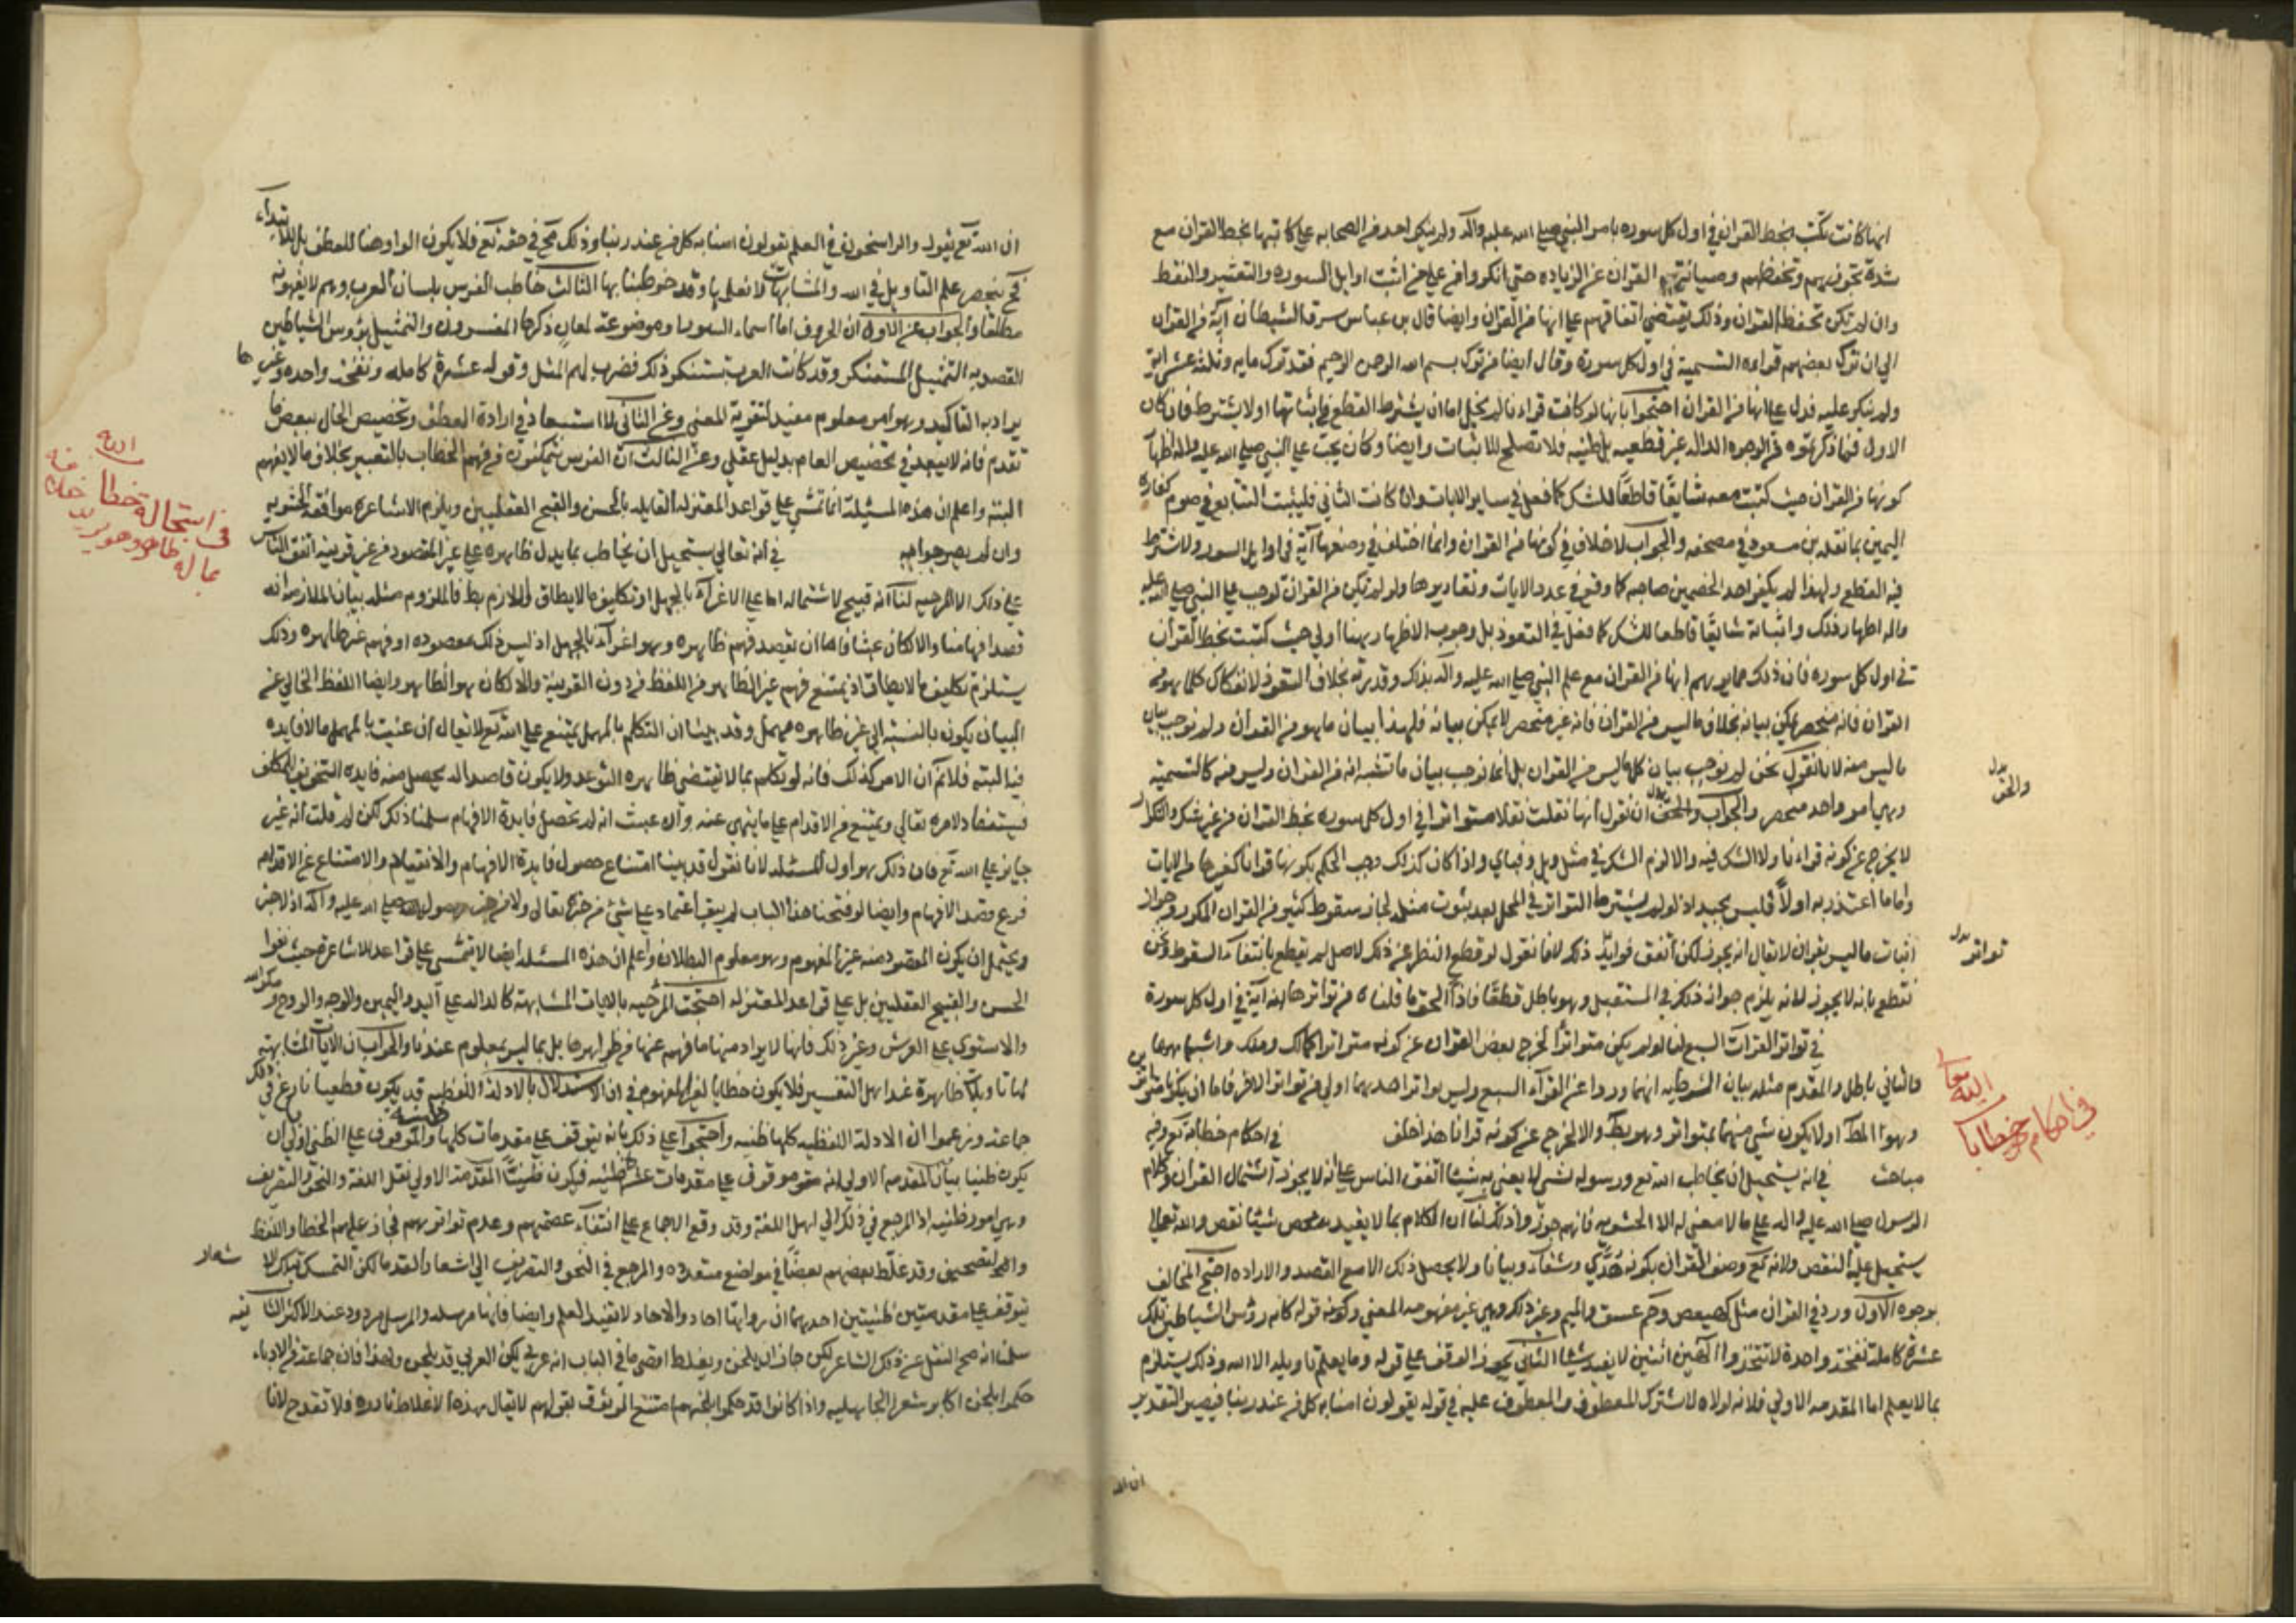 انها كانت تكتب بخط القران في اول كل سورة بامر النبي صلى الله عليه وآله ولم ينكر احد من الصحابه على كاتبها بخط القران مع
شدة تحرزهم وتحفظهم وصيانتهم القران عن الزيادة حتى انكروا على من اثبت اوايل السورة والتعشير والنقط
وان لم يكن تحفظ القران وذلك يقتضي اتفاقهم على انها من القران وايضا قال بن عباس سرق الشيطان آية من القران
الى ان ترك بعضهم قراءة التسمية في اول كل سورة وقال ايضا من ترك بسم الله الرحمن الرحيم فقد ترك ماية وثلثة عشر آية
ولم ينكر عليه فدل على انها من القران احتجوا بانها لو كانت قراءنا لم يخل اما ان يشترط القطع في اثباتها او لا يشترط فان كان
الاول فما ذكرتموه من الوجوه الداله غير قطعيه بل ظنيه فلا تصلح للاثبات وايضا وكان يجب على النبي صلى الله عليه وآله اظهار
كونها من القران حيث كتبت معه شايعًا قاطعًا للشك كما فعل في ساير الايات وان كانت الثاني فليثبت التتابع في صوم كفارة
اليمين بما نقله بن مسعود في مصحفه والجواب لا خلاف في كونها من القران وانما اختلف في وضعها آية في اوايل السور ولا يشترط
فيه القطع ولهذا لم يكفر احد الخصمين صاحبه كما وقع في عدد الايات ومقاديرها ولو لم تكن من القران لوجب على النبي صلى الله عليه
وآله اظهار ذلك واثباته شايعًا قاطعا للشك كما فعل في التعوذ بل وجوب الاظهار ههنا اولى حيث كتبت بخط القرآن
في اول كل سورة فان ذلك مما يوهم انها من القران مع علم النبي صلى الله عليه وآله بذلك وقدرته بخلاف التعوذ لانفكاك كلما هو من
القران فانه منحصر يمكن بيانه بخلاف ما ليس من القران فانه غير منحصر لا يمكن بيانه فلهذا بيان ما هو من القرآن ولم نوجب بيان
ما ليس منه لانا نقول نحن لم نوجب بيان كلما ليس من القران بل انما نوجب بيان ما تشبه انه من القران وليس منه كالتسمية
وهي امر واحد منحصر والجواب والحق ان نقول انها نقلت نقلا متواترا في اول كل سوره بخط القران من غير شك والتكرار
لا يخرج عن كونه قراءنا ولا الشك فيه والا لزم الشك في مثل ويل وفباي واذا كان كذلك وجب الحكم بكونها قرانا كغيرها من الايات
واما ما اعتذر به اولًا فليس بجيد اذ لو لم يشترط التواتر في المحل بعد ثبوت مثله لجاز سقوط كثير من القران المكرر وجواز
اثبات ما ليس بقران لا يقال انه يجوز لكن اتفق تواتر ذلك لانا نقول لو قطع النظر عن ذلك الاصل لم نقطع بانتفاء السقوط ونحن
نقطع بانه لا يجوز لانه يلزم جواز ذلك في المستقبل وهو باطل قطعًا فاذا الحق ما قلناه من تواترها انه آية في اول كل سورة
في تواتر القراآت السبع لنا لو لم يكن متواترًا لخرج بعض القران عن كونه متواتر كمالك وملك واشباههما
فالثاني باطل والمقدم مثله بيان الشرطيه انهما وردوا عن القراء السبع وليس تواتر احدهما اولى من تواتر الاخر فاما ان يكونا متواترين
وهو المط او لا يكون شي منهما بمتواتر وهو بط والا لخرج عن كونه قرانا هذا خلف في احكام خطابه تع وفيه
مباحث في انه يستحيل ان يخاطب الله تع ورسوله بشي لا يعنى به شيئا اتفق الناس على انه لا يجوز اشتمال القرآن وكلام
الرسول صلى الله عليه وآله على ما لا معنى له الا الحشويه فانهم جوزوا ذلك لنا ان الكلام بما لا يفيد محض شيئا نقص والله تعالى
يستحيل عليه النقص ولانه تع وصف القران بكونه هُدًى وشفاءً وبيانا ولا يحصل ذلك الا مع القصد والاراده احتج المخالف
بوجوه الاول ورد في القران مثل كهيعص وحم عسق والميم وغير ذلك وهي غير مفهومه المعنى وكونه قوله كانه رؤس الشياطين تلك
عشرة كاملة نفخة واحدة لا تتخذوا الهين اثنين لا يفيد شيئا الثاني يجوز الوقف على قوله وما يعلم تاويله الا الله وذلك يستلزم
بما لا يعلم اما المقدمه الاولى فلانه لولاه لاشترك المعطوف والمعطوف عليه في قوله يقولون امنا به كل من عند ربنا فيصير التقدير
ان الله
بدل
والحق
بدل
تواتر
في احكام خطاب
الله تعا
ان الله تع يقول والراسخون في العلم يقولون امنا به كل من عند ربنا وذلك مح في حقه تع فلا يكون الواو هنا للعطف بل للابتداء
فح ينحصر علم التاويل في الله والمتشابهات لا نعلمها وقد خوطبنا بها الثالث خاطب الفرس بلسان العرب وهم لا يفهمونه
مطلقًا والجواب عن الاول ان الحروف اما اسماء السور او موضوعة لمعان ذكرها المفسرون والتمثيل برؤس الشياطين
القصد به التمثيل المستنكر وقد كانت العرب تستنكر ذلك فضرب لهم المثل وقوله عشرة كاملة ونفخة واحدة وغيرها
يراد به التاكيد وهو امر معلوم مفيد لتقوية المعنى وعن الثاني لا استبعاد في ارادة العطف وتخصيص الحال ببعض ما
تقدم فانه لا يبعد في تخصيص العام بدليل عقلي وعن الثالث ان الفرس متمكنون من فهم الخطاب بالتعبير بخلاف ما لا يفهم
البته واعلم ان هذه المسئلة انما تتمشى على قواعد المعتزله القايله بالحسن والقبح العقليين ويلزم الاشاعرة موافقة الحشويه
وان لم يصرحوا به في انه تعالى يستحيل ان يخاطب بما يدل ظاهره على غير المقصود من غير قرينه اتفق الناس
على ذلك الا المرجيه لنا انه قبيح لاشتماله اما على الاغراء بالجهل او تكليف ما لا يطاق واللازم بط فالملزوم مثله بيان الملازمة انه
قصد افهامنا والا لكان عبثا فاما ان يقصد فهم ظاهره وهو اغراء بالجهل اذ ليس ذلك مقصوده او فهم غير ظاهره وذلك
يستلزم تكليف ما لا يطاق اذ يمتنع فهم غير الظاهر من اللفظ من دون القرينة والا لكان هو الظاهر وايضا اللفظ الخالي عن
البيان يكون بالنسبة الى غير ظاهره مهمل وقد بينا ان التكلم بالمهمل يمتنع على الله تع لا يقال ان عنيت بالمهمل ما لا فايده
فيه البته فلا نم ان الامر كذلك فانه لو تكلم بما لا يقتضي ظاهره التوعد ولا يكون قاصدا له يحصل منه فايده التخويف للمكلف
فيستفاد لامره تعالى ويمتنع من الاقدام على ما ينهي عنه وان عبث انه لم تحصل فايدة الافهام سلمنا ذلك لكن لم قلت انه غير
جايز على الله تع فان ذلك هو اول المسئله لانا نقول قد بينا امتناع حصول فايدة الافهام والانقياد والامتناع عن الاقدام
فرع وقصد الافهام وايضا لو فتحنا هذا الباب لم يبق اعتماد على شئ من خبره تعالى ولا من خبر رسول الله صلى الله عليه وآله اذ لا خبر
ويحتمل ان يكون المقصود منه غير المفهوم وهو معلوم البطلان واعلم ان هذه المسئلة ايضا لا يتمشى على قواعد الاشاعرة حيث نفوا
الحسن والقبح العقليين بل على قواعد المعتزله احتجت المرجيه بالايات المتشابهة كالداله على اليد واليمين والوجه والروح ومكر الله
والاستوى على العرش وغير ذلك فانها لا يراد منها ما فهم عنها من ظواهرها بل بما ليس بمعلوم عندنا والجواب ان الايات المتشابهة
لها تاويلات ظاهرة عند اهل التفسير فلا يكون خطابا لغير المفهوم في ان الاستدلال بالادلة اللفظيه قد يكون قطعيا نازع في ذلك
جماعة وزعموا ان الادلة اللفظيه كلها ظنيه واحتجوا على ذلك بانه يتوقف على مقدمات كلها ظنية والموقوف على الظني اولى ان
يكون ظنيا بيان المقدمه الاولى انه موقوف على مقدمات عشر ظنيه فيكون ظنيًا المقدمة الاولى نقل اللغة والنحو والتصريف
وهي امور ظنيه اذ المرجع في ذلك الى اهل اللغة وقد وقع الاجماع على انتفاء عصمتهم وعدم تواترهم فجاز عليهم الخطا واللفظ
والتصحيف وقد غلّط بعضهم بعضًا في مواضع متعدده والمرجع في النحو والتصريف الى اشعار القدما لكن التمسك بتلك الاشعار
يتوقف على مقدمتين ظنيتين احديهما ان رواتها احاد والاحاد لا تفيد العلم وايضا فانها مرسله والمرسل مردود عند الاكثر الثانيه
سلمنا انه صح النقل عن ذلك الشاعر لكن جاز ان يلحن ويغلط اقصى ما في الباب انه عربي لكن العربي قد يلحن ولهذا فان جماعة من الادباء
حكموا بلحن اكابر شعراء الجاهليه واذا كانوا قد حكموا بلحنهم امتنع الوثوق بقولهم لا يقال هذه الاغلاط نادره فلا تقدح لانا
في استحالة خطاب الله
بما له ظاهر وهو يريد خلافه